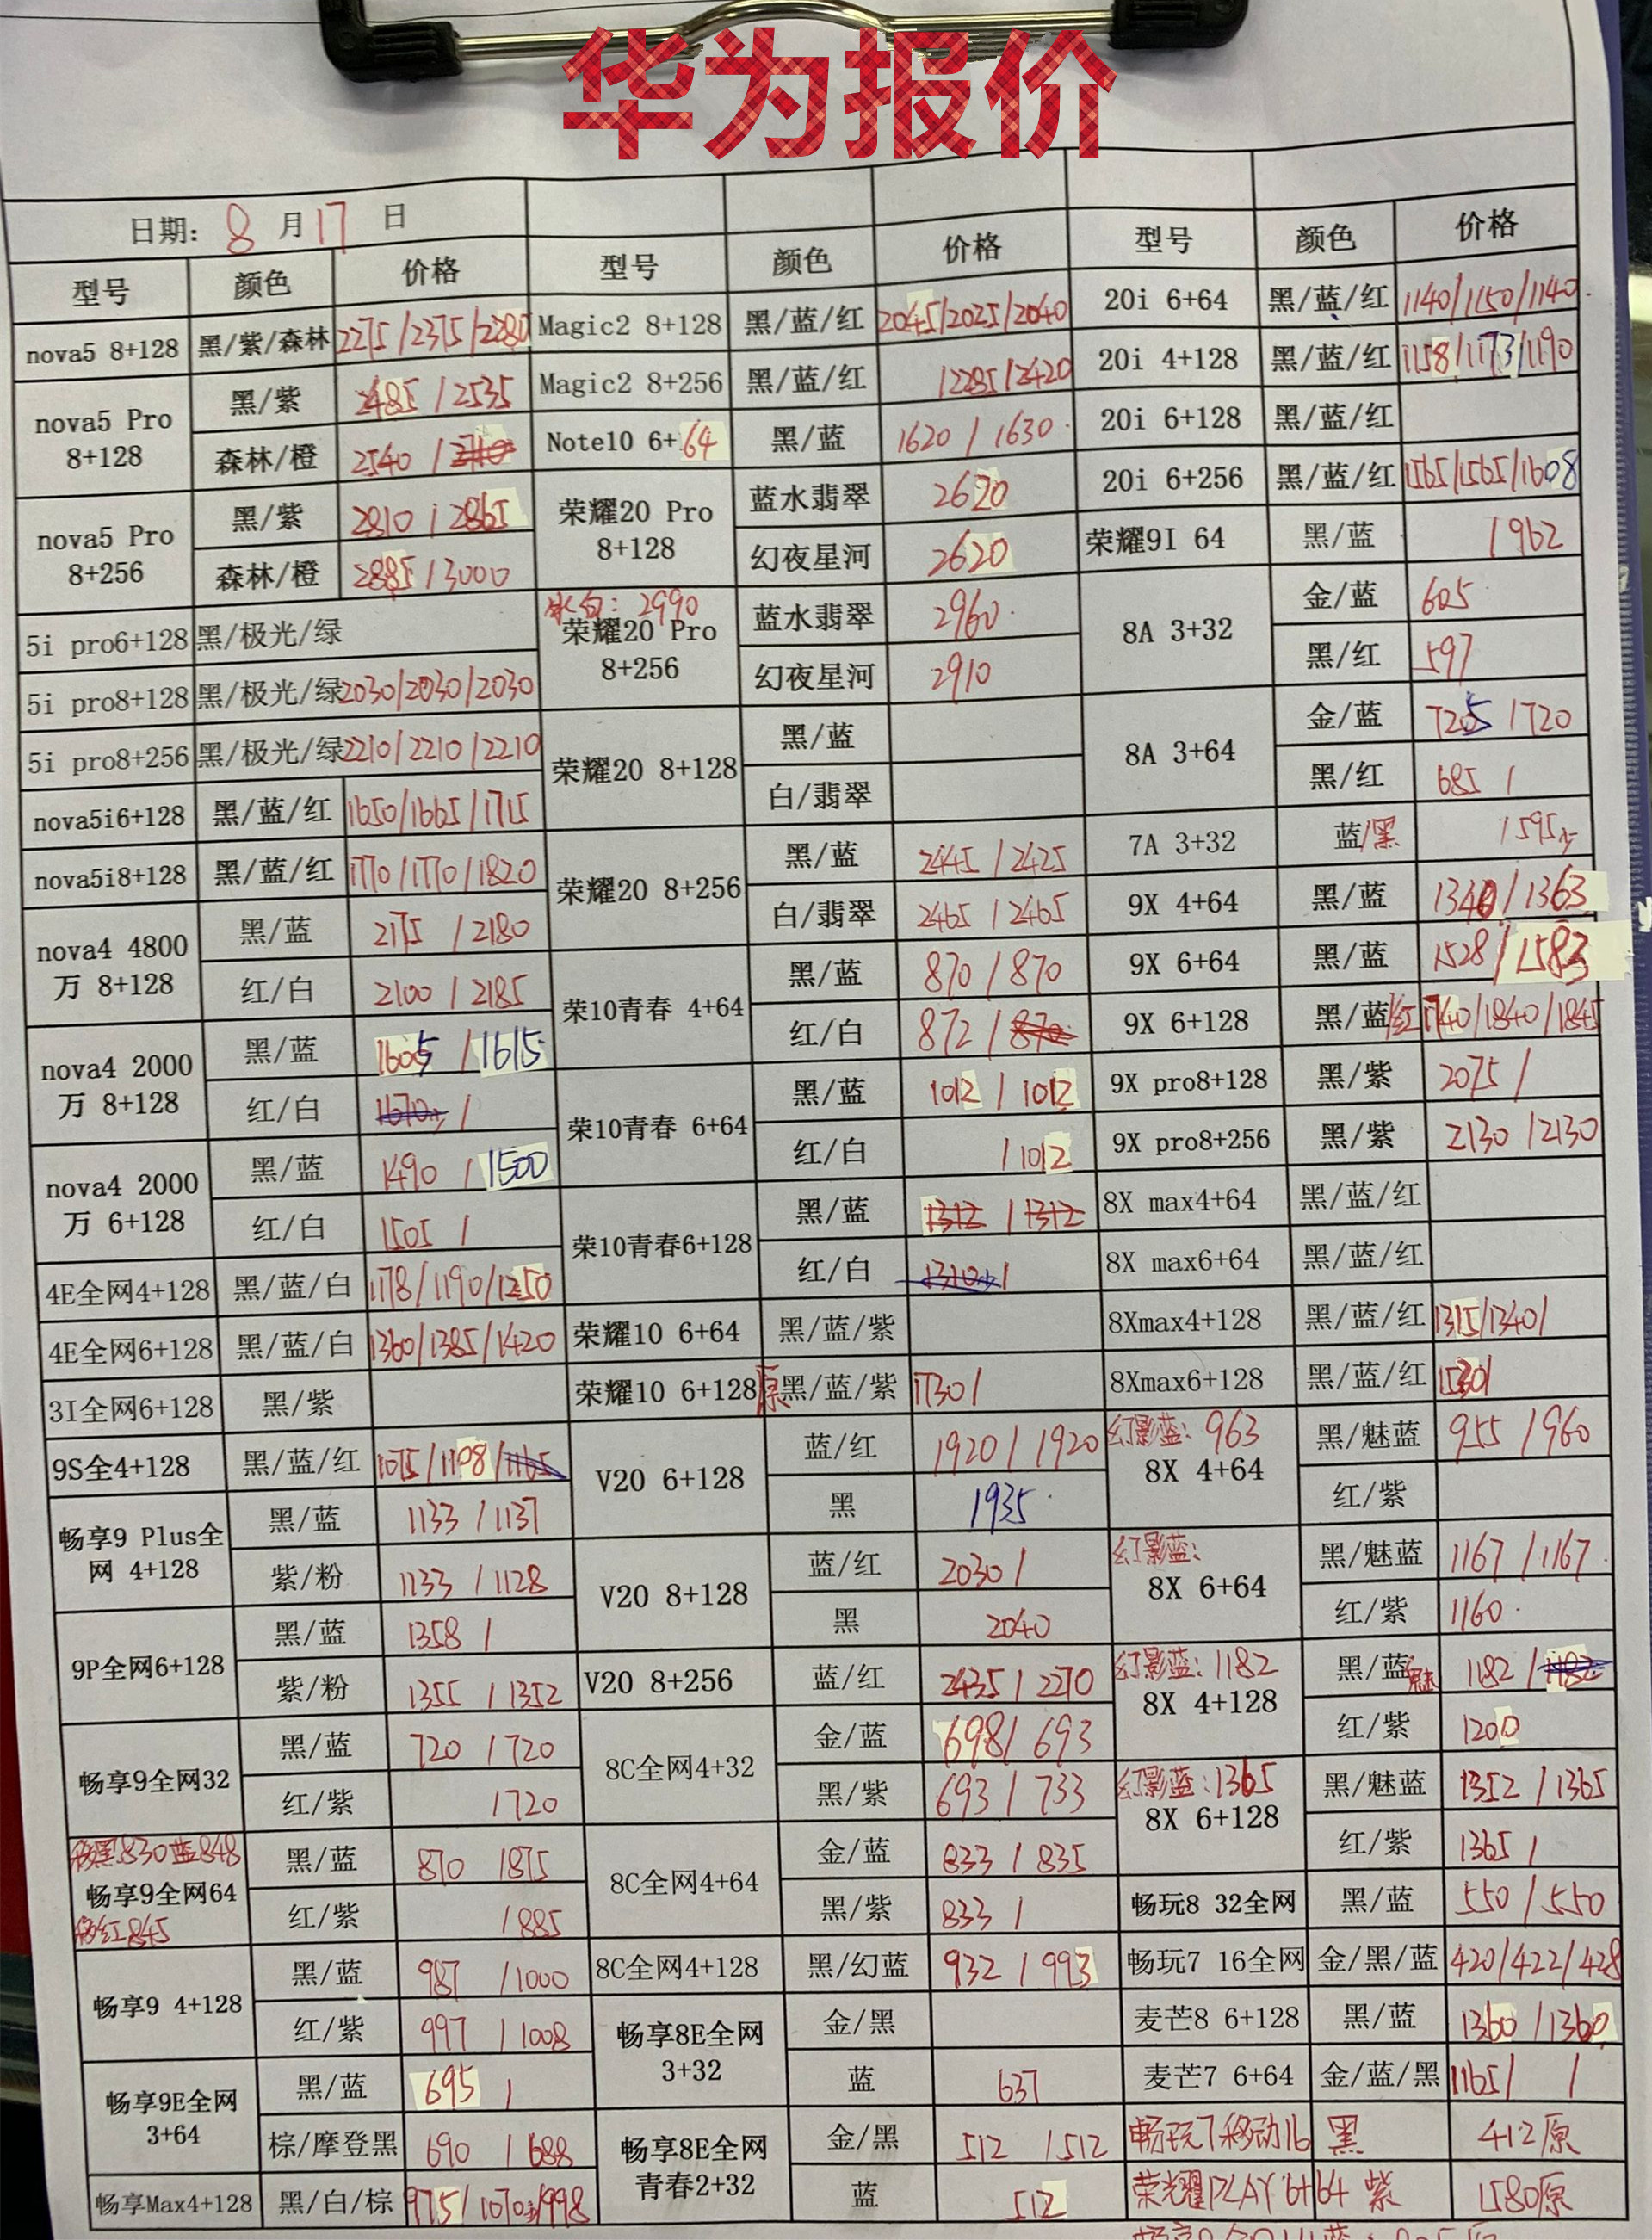 华为报价
日期: 8 月 17 日
型号 颜色 价格 型号 颜色 价格 型号 颜色 价格
nova5 8+128 黑/紫/森林 2275/2375/2280 Magic2 8+128 黑/蓝/红 2045/2025/2040 20i 6+64 黑/蓝/红 1140/1150/1140
nova5 Pro 8+128 黑/紫 2485/2535 Magic2 8+256 黑/蓝/红 /2285/2420 20i 4+128 黑/蓝/红 1158/1173/1190
森林/橙 2540/ Note10 6+64 黑/蓝 1620/1630 20i 6+128 黑/蓝/红
nova5 Pro 8+256 黑/紫 2810/2865 荣耀20 Pro 8+128 蓝水翡翠 2620 20i 6+256 黑/蓝/红 1565/1565/1608
森林/橙 2885/3000 幻夜星河 2620 荣耀9I 64 黑/蓝 /962
5i pro6+128 黑/极光/绿 冰白: 2990 荣耀20 Pro 8+256 蓝水翡翠 2960 8A 3+32 金/蓝 605
5i pro8+128 黑/极光/绿 2030/2030/2030 幻夜星河 2910 黑/红 597
5i pro8+256 黑/极光/绿 2210/2210/2210 荣耀20 8+128 黑/蓝 8A 3+64 金/蓝 725/720
nova5i6+128 黑/蓝/红 1650/1665/1715 白/翡翠 黑/红 685/
nova5i8+128 黑/蓝/红 1770/1770/1820 荣耀20 8+256 黑/蓝 2445/2425 7A 3+32 蓝/黑 /595
nova4 4800万 8+128 黑/蓝 2175/2180 白/翡翠 2465/2465 9X 4+64 黑/蓝 1340/1363
红/白 2100/2185 荣10青春 4+64 黑/蓝 870/870 9X 6+64 黑/蓝 1528/1583
nova4 2000万 8+128 黑/蓝 1605/1615 红/白 872/870 9X 6+128 黑/蓝/红 1740/1840/1845
红/白 1670/ 荣10青春 6+64 黑/蓝 1012/1012 9X pro8+128 黑/紫 2075/
nova4 2000万 6+128 黑/蓝 1490/1500 红/白 /1012 9X pro8+256 黑/紫 2130/2130
红/白 1505/ 荣10青春6+128 黑/蓝 1312/1312 8X max4+64 黑/蓝/红
4E全网4+128 黑/蓝/白 1178/1190/1250 红/白 1310/ 8X max6+64 黑/蓝/红
4E全网6+128 黑/蓝/白 1360/1385/1420 荣耀10 6+64 黑/蓝/紫 8Xmax4+128 黑/蓝/红 1315/1340/
3I全网6+128 黑/紫 荣耀10 6+128 原黑/蓝/紫 1730/ 8Xmax6+128 黑/蓝/红 1530/
9S全4+128 黑/蓝/红 1075/1108/1165 V20 6+128 蓝/红 1920/1920 幻影蓝: 963 8X 4+64 黑/魅蓝 955/960
畅享9 Plus全网 4+128 黑/蓝 1133/1137 黑 1935 红/紫
紫/粉 1133/1128 V20 8+128 蓝/红 2030/ 幻影蓝: 8X 6+64 黑/魅蓝 1167/1167
9P全网6+128 黑/蓝 1358/ 黑 2040 红/紫 1160
紫/粉 1355/1352 V20 8+256 蓝/红 2435/2270 幻影蓝: 1182 8X 4+128 黑/蓝魅 1182/1182
畅享9全网32 黑/蓝 720/720 8C全网4+32 金/蓝 698/693 红/紫 1200
红/紫 /720 黑/紫 693/733 幻影蓝: 1365 8X 6+128 黑/魅蓝 1352/1365
黑830蓝848 畅享9全网64 红845 黑/蓝 870/875 8C全网4+64 金/蓝 833/835 红/紫 1365/
红/紫 /885 黑/紫 833/ 畅玩8 32全网 黑/蓝 550/550
畅享9 4+128 黑/蓝 987/1000 8C全网4+128 黑/幻蓝 932/993 畅玩7 16全网 金/黑/蓝 420/422/428
红/紫 997/1008 畅享8E全网 3+32 金/黑 麦芒8 6+128 黑/蓝 1360/1360
畅享9E全网 3+64 黑/蓝 695/ 蓝 637 麦芒7 6+64 金/蓝/黑 1165/ /
棕/摩登黑 690/688 畅享8E全网青春2+32 金/黑 512/512 畅玩7移动16 黑 412原
畅享Max4+128 黑/白/棕 975/1070/998 蓝 512 荣耀PLAY 6+64 紫 1580原